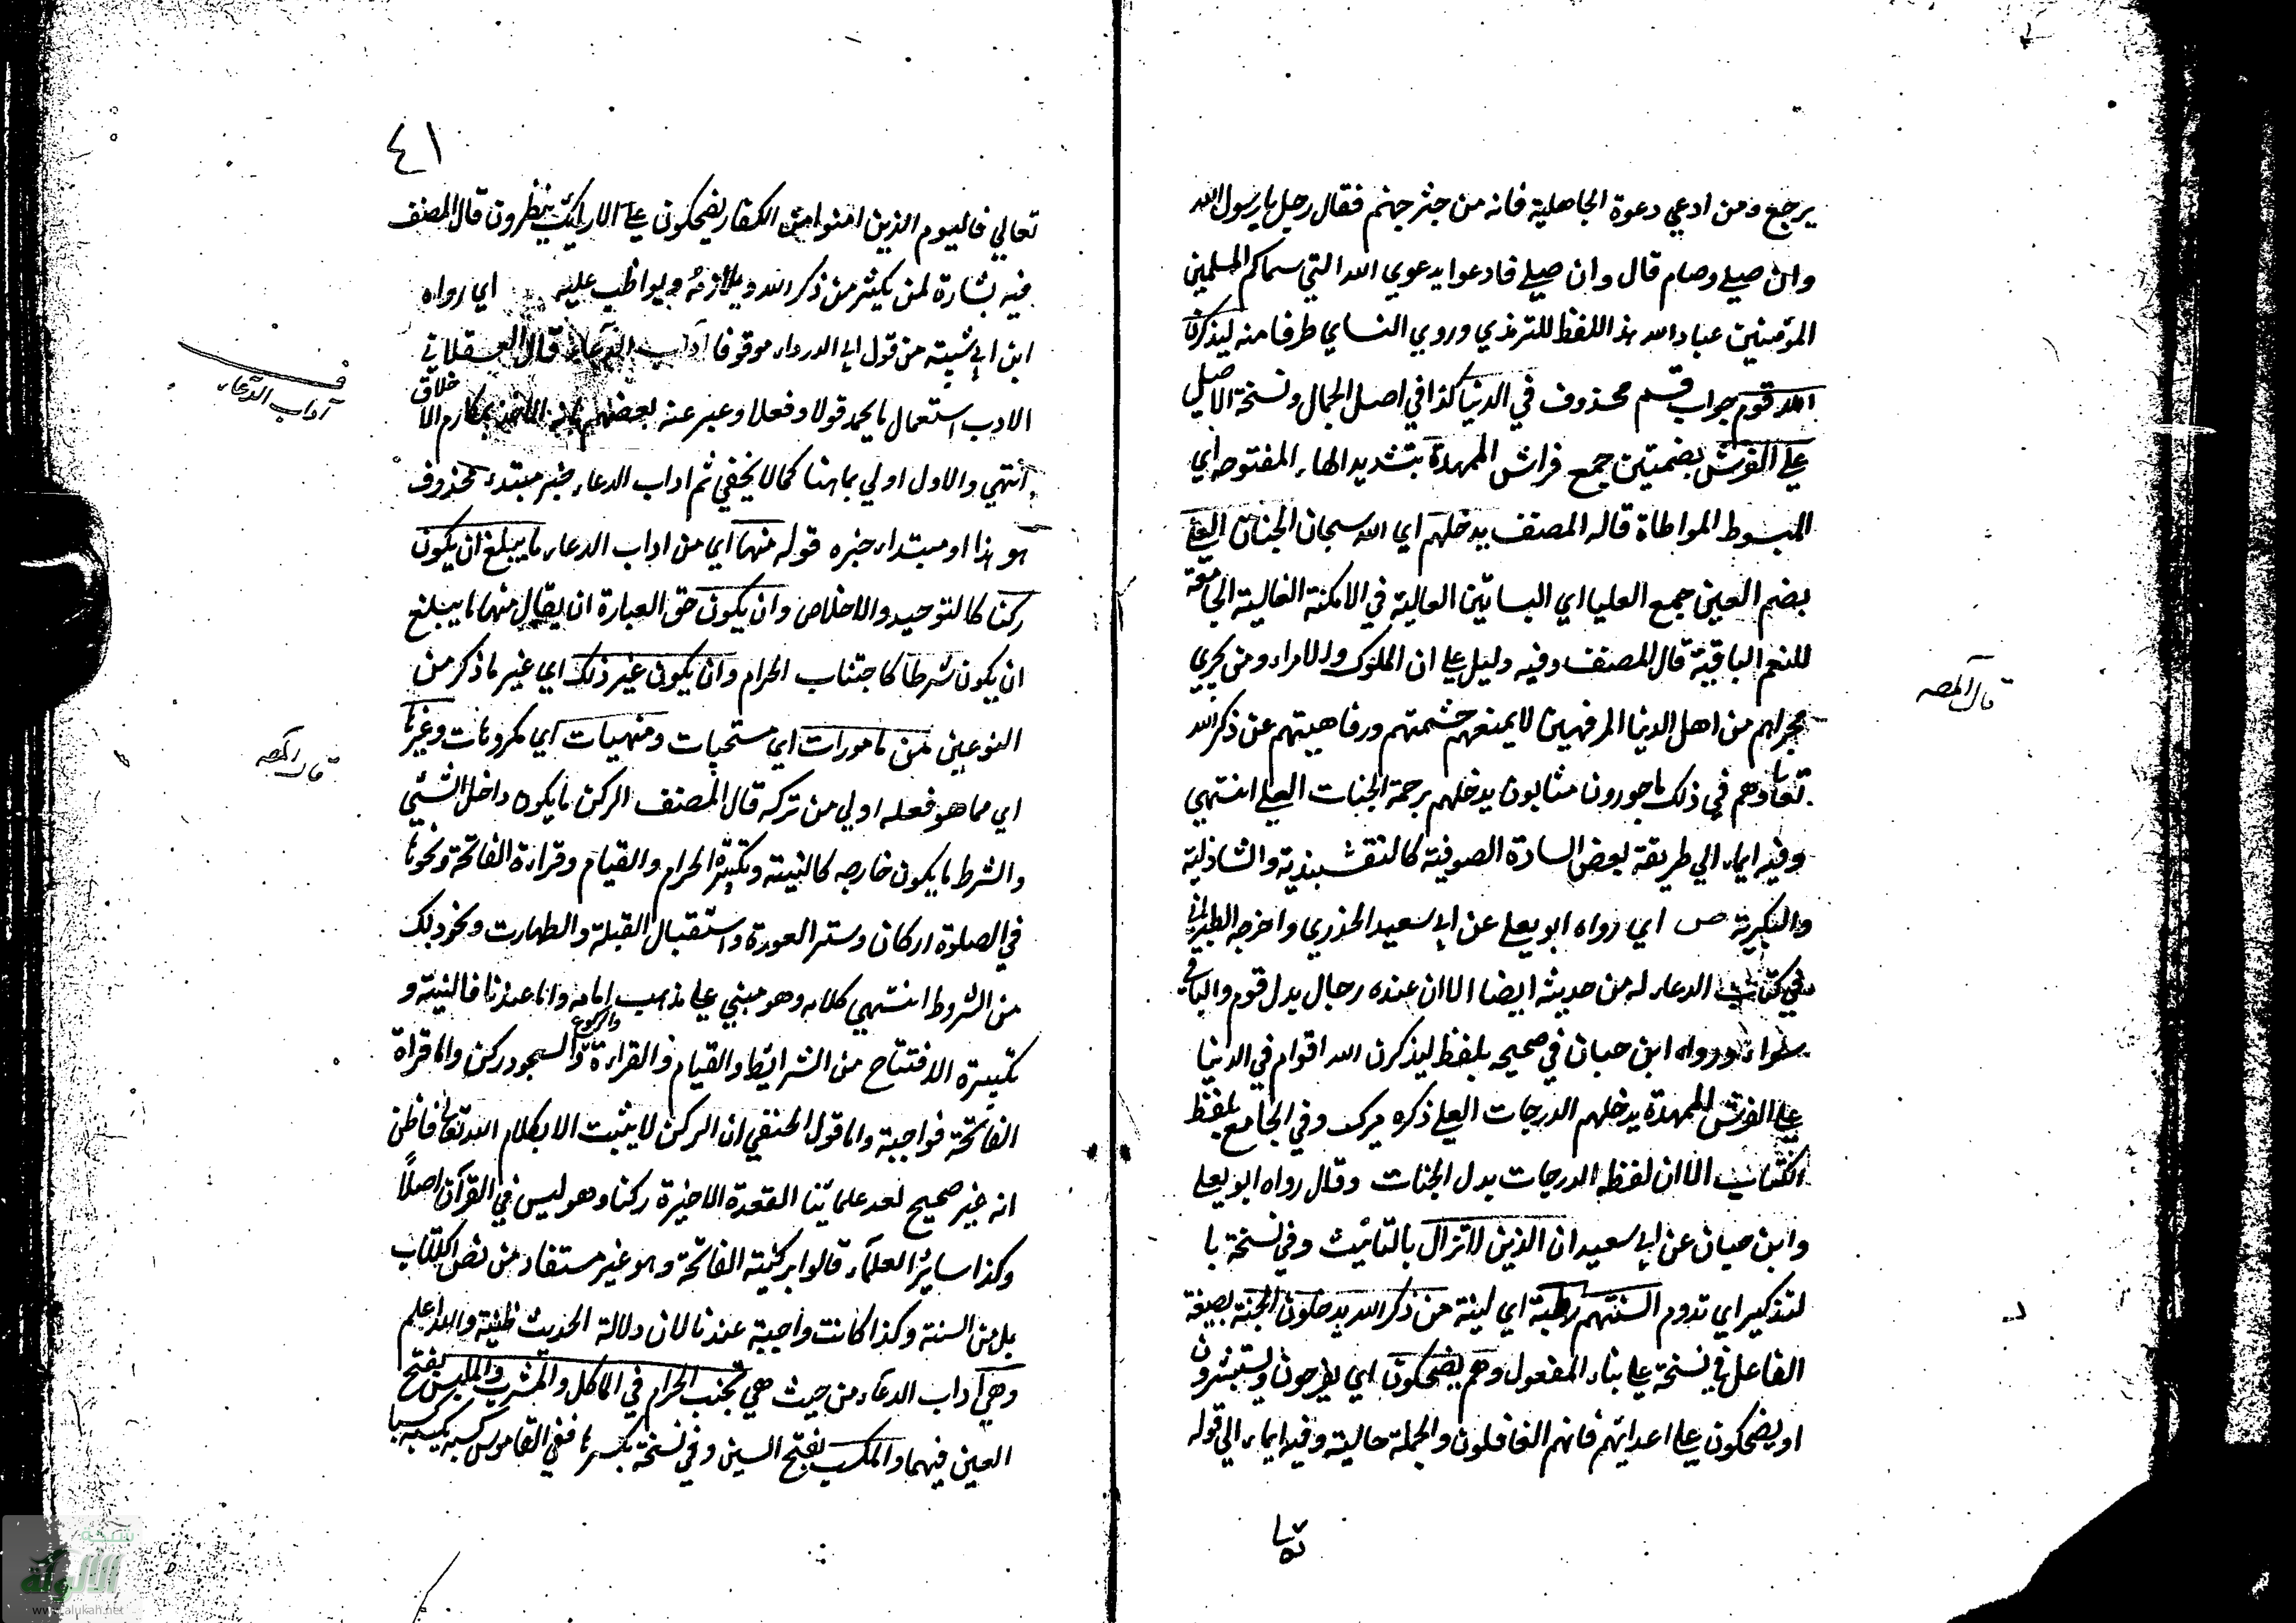 يرجع ومن ادعي دعوة الجاهلية فانه من جثر جهنم فقال رجل يا رسول الله
وان صلي وصام قال وان صلي فادعوا بدعوي الله التي سماكم المسلمين
المؤمنين عباد الله هذا اللفظ للترمذي وروي النساي طرفا منه ليذكرن
الله قوم جواب قسم محذوف في الدنيا كذا في اصل الجمال ونسخة الاصيل
علي الفرش بضمتين جمع فراش الممهدة بتشديد الهاء المفتوحه اي
المبسوط المواطاة قاله المصنف يدخلهم اي الله سبحان الجنات العلي
بضم العين جمع العليا اي البساتين العالية في الامكنة الغالية الجامعة
للنعم الباقية قال المصنف وفيه دليل علي ان الملوك والامراء ومن يجري
مجراهم من اهل الدنيا المرفهين لا يمنعهم حشمتهم ورفاهيتهم عن ذكر الله
تعا وهم في ذلك ماجورون مثابون يدخلهم برحمة الجنات العلي انتهي
وفيه ايماء الي طريقة بعض السادة الصوفية كالنقشبندية والشاذلية
والبكرية ص اي رواه ابو يعلي عن ابي سعيد الخذري واخرجه الطبراني
في كتاب الدعاء له من حديثه ايضا الا ان عنده رجال بدل قوم والباقي
سواء ورواه ابن حبان في صحيحه بلفظ ليذكرن الله اقوام في الدنيا
علي الفرش الممهدة يدخلهم الدرجات العلي ذكره ميرك وفي الجامع بلفظ
الكتاب الا ان لفظه الدرجات بدل الجنات وقال رواه ابو يعلي
وابن حبان عن ابي سعيد ان الذين لا تزال بالتانيث وفي نسخة با
لتذكير اي تدوم السنتهم رطبة اي لينة من ذكر الله يدخلون الجنة بصيغة
الفاعل في نسخة علي بناء المفعول وهم يضحكون اي يفرحون ويستبشرون
او يضحكون علي اعدائهم فانهم الغافلون والجملة حالية وفيه ايماء الي قوله
قال المصه
٤١
تعالي فاليوم الذين امنوا من الكفار يضحكون علي الارايك ينظرون قال المصنف
فيه بشارة لمن يكثر من ذكر الله ويلازمه ويواظب عليه اي رواه
ابن ابي شيبة من قول ابي الدرداء موقوفا اداب الدعاء قال العسقلاني
الادب استعمال ما يحمد قولا وفعلا وعبر عنه بعضهم بانه الاخذ بمكارم الا
خلاق
انتهي والاول اولي بما هنا كما لا يخفي ثم اداب الدعاء خبر مبتدء محذوف
هو هذا او مبتداء خبره قوله منها اي من اداب الدعاء ما يبلغ ان يكون
ركنا كالتوحيد والاخلاص وان يكون حق العبارة ان يقال منها ما يبلغ
ان يكون شرطا كاجتناب الحرام وان يكون غير ذلك اي غير ما ذكر من
النوعين من مامورات اي مستحبات ومنهيات اي مكروهات وغيرها
اي مما هو فعله اولي من تركه قال المصنف الركن ما يكون داخل الشئي
والشرط ما يكون خارجه كالنية وتكبيرة الحرام والقيام وقراءة الفاتحة ونحوها
في الصلوة اركان وستر العورة واستقبال القبلة والطهارت ونحو ذلك
من الشروط انتهي كلامه وهو مبني علي مذهب امامه واما عندنا فالنية و
تكبيرة الافتتاح من الشرائط والقيام والقراءة والركوع والسجود ركن واما قراة
الفاتحة فواجبة واما قول الحنفي ان الركن لا يثبت الا بكلام الله تعالي فاظن
انه غير صحيح لعد علمائنا القعدة الاخيرة ركنا وهو ليس في القرآن اصلاً
وكذا سائر العلمآء قالوا بركنية الفاتحة وهو غير مستفاد من نص الكتاب
بل من السنة وكذا كانت واجبة عندنا لان دلالة الحديث ظنية والله اعلم
وهي آداب الدعآء من حيث هي تجنب الحرام في الماكل والمشرب والملبس بفتح
العين فيهما والمكسب بفتح السين وفي نسخة بكسرها ففي القاموس كسبه يكسبه كسبا
آداب الدعآء
قال المصه
شبكة
الألوكة
www.alukah.net